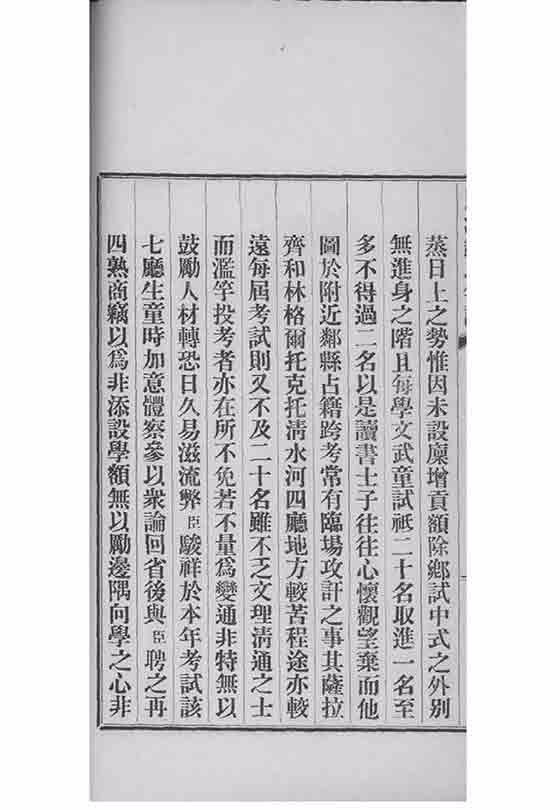 蒸日上之勢惟因未設廩增貢額除鄉試中式之外別
無進身之階且每學文武童試祇二十名取進一名至
多不得過二名以是讀書士子往往心懷觀望棄而他
圖於附近鄰縣占籍跨考常有臨場攻訐之事其薩拉
齊和林格爾托克托清水河四廳地方較苦程途亦較
遠每屆考試則又不及二十名雖不乏文理清通之士
而濫竽投考者亦在所不免若不量為變通非特無以
鼓勵人材轉恐日久易滋流弊臣駿祥於本年考試該
七廳生童時加意體察參以衆論回省後與臣聘之再
四熟商竊以為非添設學額無以勵邊隅向學之心非